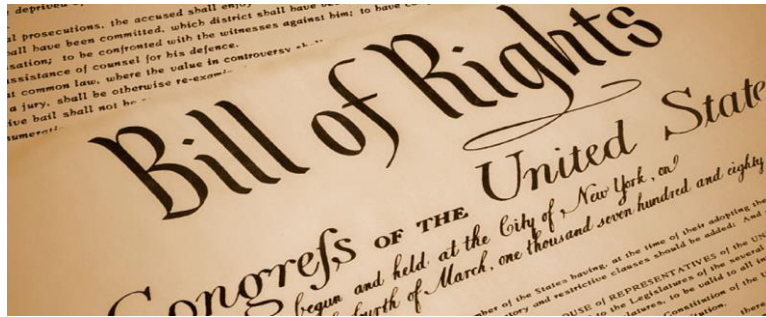 deprived of
al prosecutions, the accused shall enjoy
all have been committed, which district shall have
sation; to be confronted with the witnesses against him; to have
ssistance of counsel for his defence.
t common law, where the value in controversy shall
a jury, shall be otherwise re-exami
ive bail shall not be
numerati
Bill of Rights
Congreſs OF THE United State
begun and held at the City of New York, on
ourth of March, one thousand seven hundred and eighty
mber of the States having, at the time of their adopting the
tory and restrictive clauses should be added: And
OUSE of REPRESENTATIVES of the UN
to the Legislatures of the several
latures, to be valid to all in
Constitution of the U
onstitution.